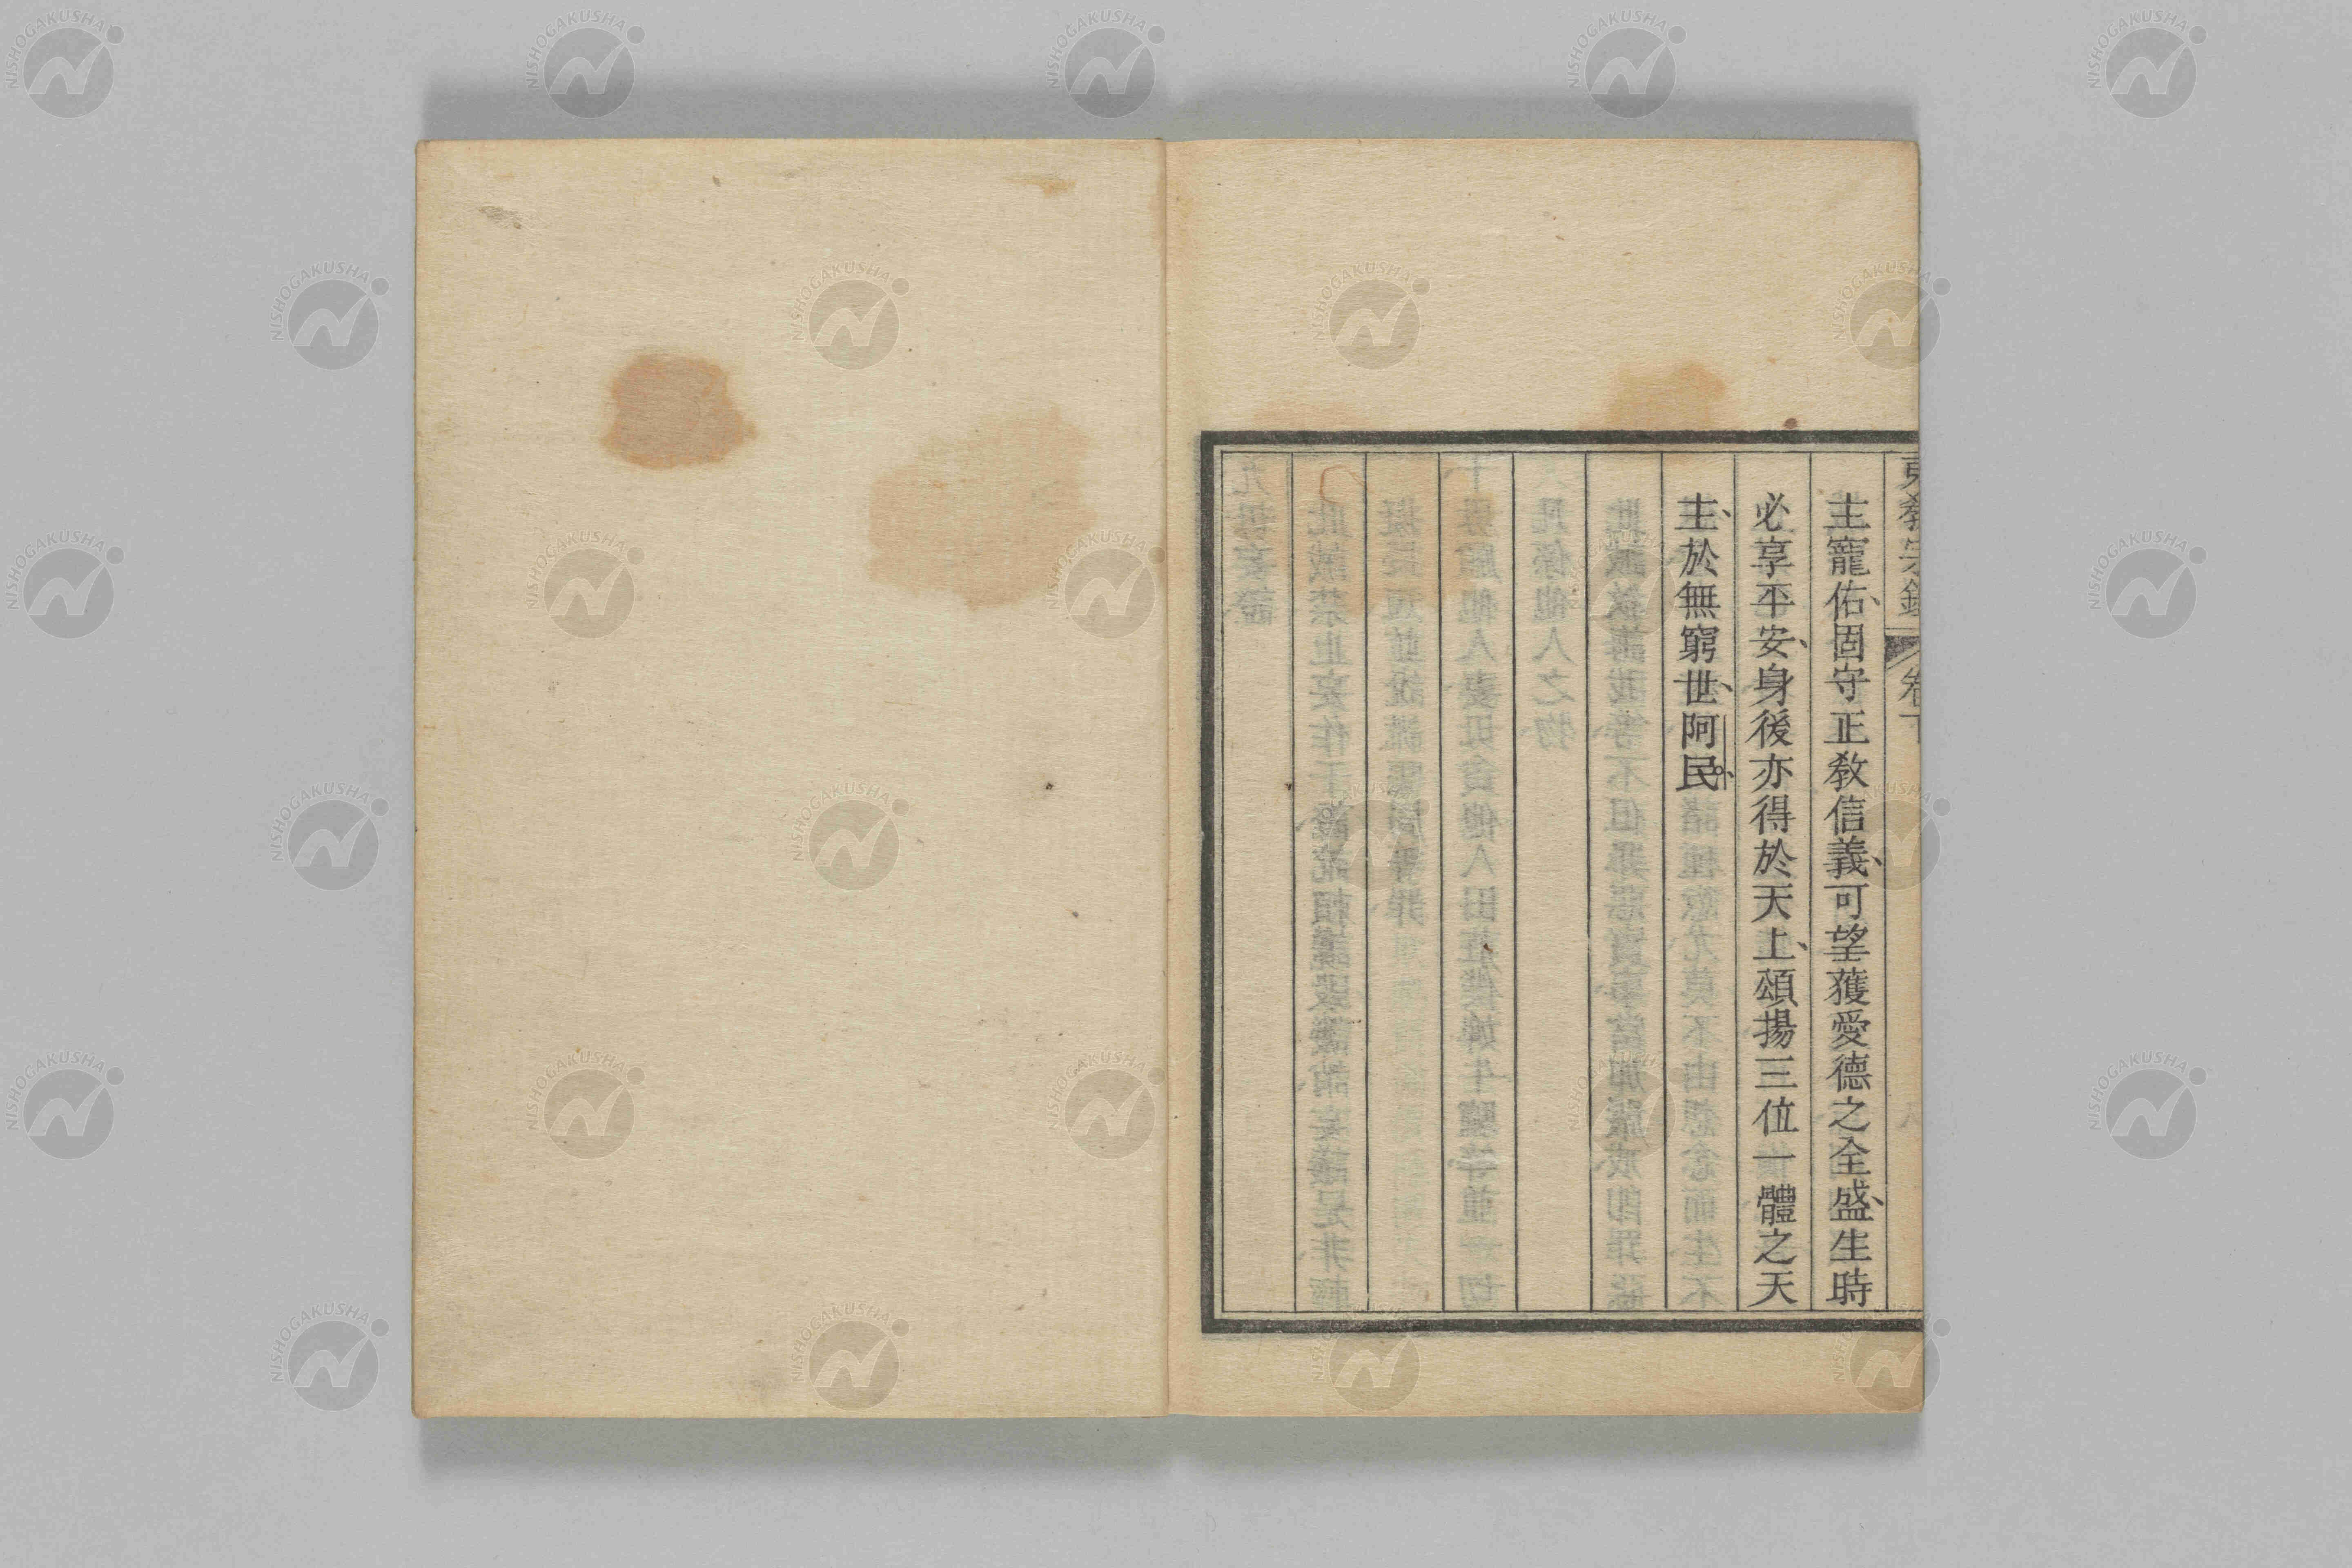 東教宗鑑 卷下
主寵佑、固守正教信義、可望獲愛德之全盛、生時
必享平安、身後亦得於天上、頌揚三位一體之天
主、於無窮世、阿民、
NISHOGAKUSHA